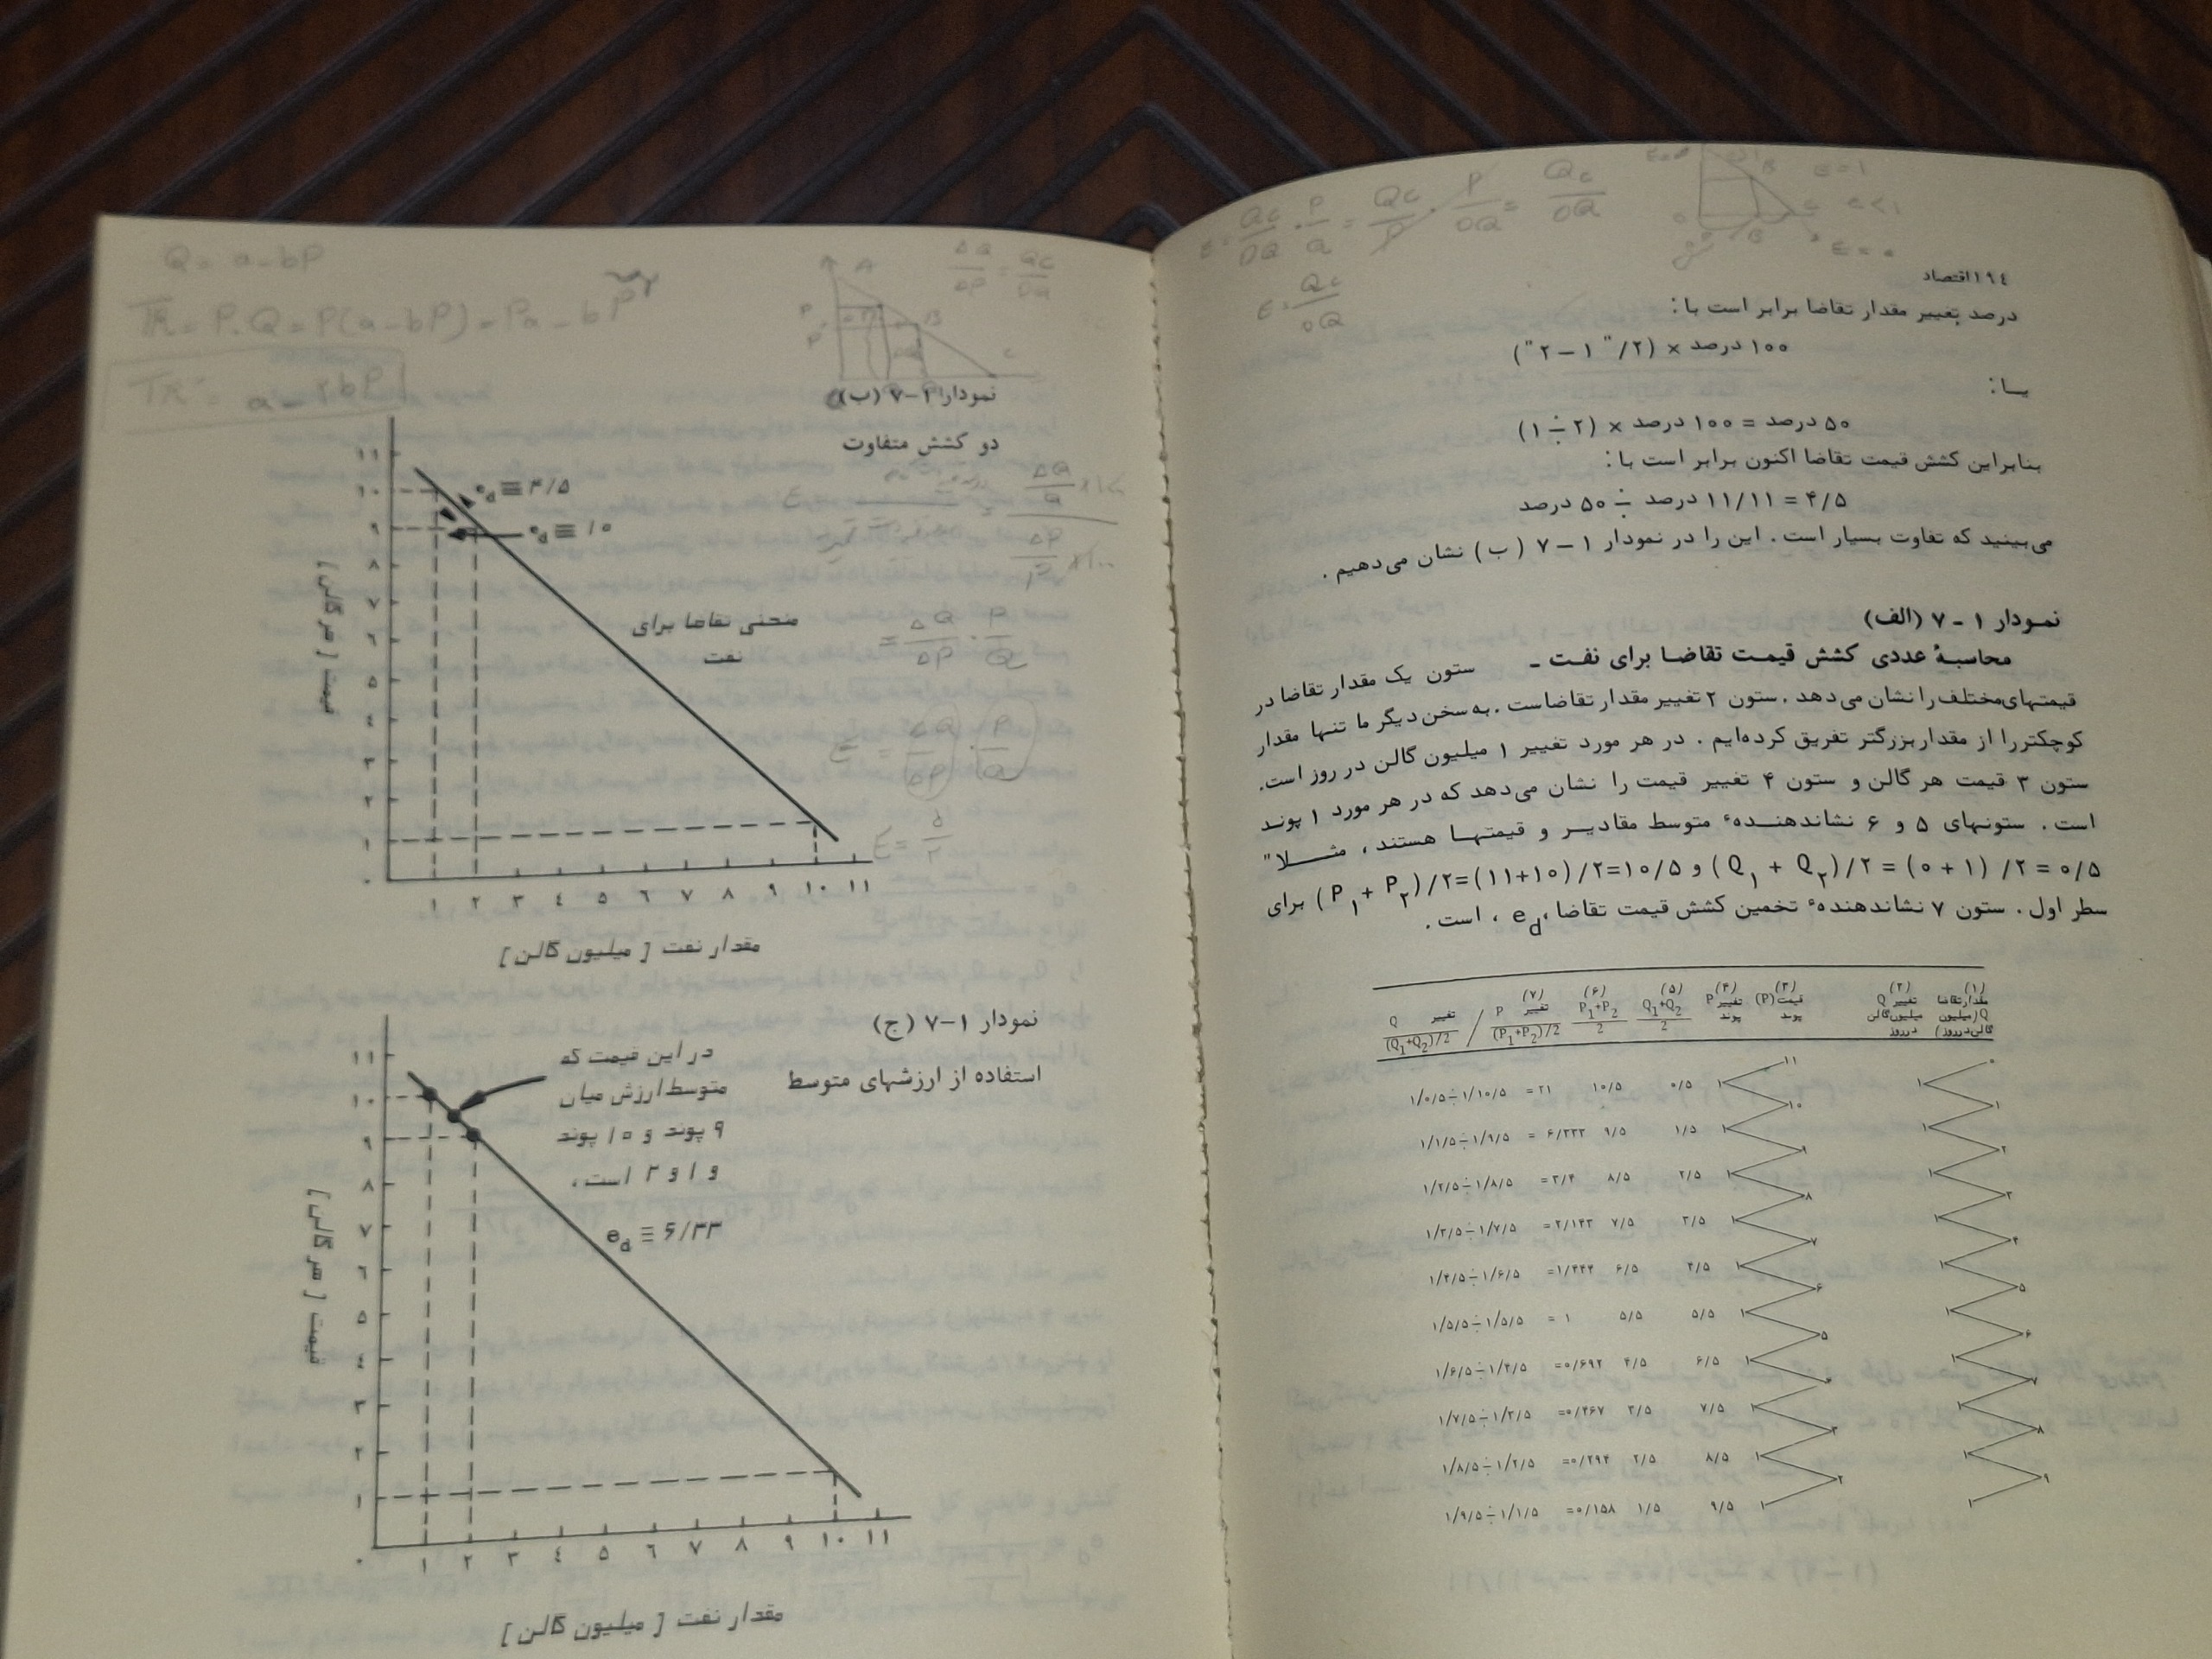 ۱۹۴ اقتصاد
درصد تغییر مقدار تقاضا برابر است با:
۱۰۰ درصد × (۲/ " ۱ − ۲ ")
یـا:
۵۰ درصد = ۱۰۰ درصد × (۲ ÷ ۱)
بنابراین کشش قیمت تقاضا اکنون برابر است با:
۴/۵ = ۱۱/۱۱ درصد ÷ ۵۰ درصد
می‌بینید که تفاوت بسیار است. این را در نمودار ۱ − ۷ (ب) نشان می‌دهیم.
نمـودار ۱ - ۷ (الف)
محاسبهٔ عددی کشش قیمـت تقاضـا برای نفـت - ستون یک مقدار تقاضا در
قیمتهای‌مختلف را نشان می‌دهد. ستون ۲ تغییر مقدار تقاضاست. به سخن دیگر ما تنها مقدار
کوچکتررا از مقدار بزرگتر تفریق کرده‌ایم. در هر مورد تغییر ۱ میلیون گالن در روز است.
ستون ۳ قیمت هر گالن و ستون ۴ تغییر قیمت را نشان می‌دهد که در هر مورد ۱ پوند
است. ستونهای ۵ و ۶ نشاندهنـدهٔ متوسط مقادیـر و قیمتهـا هستند، مثـلا"
(P₁ + P₂)/۲=(۱۱+۱۰)/۲=۱۰/۵ و (Q₁ + Q₂)/۲ = (۰ + ۱) /۲ = ۰/۵ برای
سطر اول. ستون ۷ نشاندهندهٔ تخمین کشش قیمت تقاضا، e_d ، است.
(۱) مقدارتقاضا Q (میلیون گالن‌درروز) (۲) تغییر Q میلیون‌گالن درروز (۳) قیمت(P) پوند (۴) تغییر P پوند (۵) Q₁+Q₂ / 2 (۶) P₁+P₂ / 2 (۷) تغییر Q / (Q₁+Q₂)/2 / تغییر P / (P₁+P₂)/2
۰ ۱۱
۱ ۱ ۰/۵ ۱۰/۵ ۱/۰/۵÷۱/۱۰/۵ =۲۱
۱ ۱۰
۱ ۱ ۱/۵ ۹/۵ ۱/۱/۵÷۱/۹/۵ = ۶/۳۳۳
۲ ۹
۱ ۱ ۲/۵ ۸/۵ ۱/۲/۵÷۱/۸/۵ =۳/۴
۳ ۸
۱ ۱ ۳/۵ ۷/۵ ۱/۳/۵÷۱/۷/۵ =۲/۱۴۳
۴ ۷
۱ ۱ ۴/۵ ۶/۵ ۱/۴/۵÷۱/۶/۵ =۱/۴۴۴
۵ ۶
۱ ۱ ۵/۵ ۵/۵ ۱/۵/۵÷۱/۵/۵ = ۱
۶ ۵
۱ ۱ ۶/۵ ۴/۵ ۱/۶/۵÷۱/۴/۵ =۰/۶۹۲
۷ ۴
۱ ۱ ۷/۵ ۳/۵ ۱/۷/۵÷۱/۳/۵ =۰/۴۶۷
۸ ۳
۱ ۱ ۸/۵ ۲/۵ ۱/۸/۵÷۱/۲/۵ =۰/۲۹۴
۹ ۲
۱ ۱ ۹/۵ ۱/۵ ۱/۹/۵÷۱/۱/۵ =۰/۱۵۸
E = QC/OQ · P/Q = QC/P · P/OQ = QC/OQ
E = QC/OQ
E=1
e<1
E=0
Q = a-bP
TR = P.Q = P(a-bP) = Pa - bP²
TR' = a - ۲bP
ΔQ/ΔP = QC/OQ
نمودار ۱−۷ (ب)
دو کشش متفاوت
e_d ≡ ۴/۵
e_d ≡ ۱۰
منحنی تقاضا برای
نفت
قیمت [ هر گالن ]
۱۱
۱۰
۹
۸
۷
۶
۵
۴
۳
۲
۱
۰
۱ ۲ ۳ ۴ ۵ ۶ ۷ ۸ ۹ ۱۰ ۱۱
مقدار نفت [ میلیون گالن ]
= ΔQ/ΔP · P/Q
E = ΔQ/ΔP · P/Q
نمودار ۱−۷ (ج)
استفاده از ارزشهای متوسط
در این قیمت که
متوسط ارزش میان
۹ پوند و ۱۰ پوند
و ۱ و ۲ است،
e_d ≡ ۶/۳۳
قیمت [ هر گالن ]
۱۱
۱۰
۹
۸
۷
۶
۵
۴
۳
۲
۱
۰
۱ ۲ ۳ ۴ ۵ ۶ ۷ ۸ ۹ ۱۰ ۱۱
مقدار نفت [ میلیون گالن ]